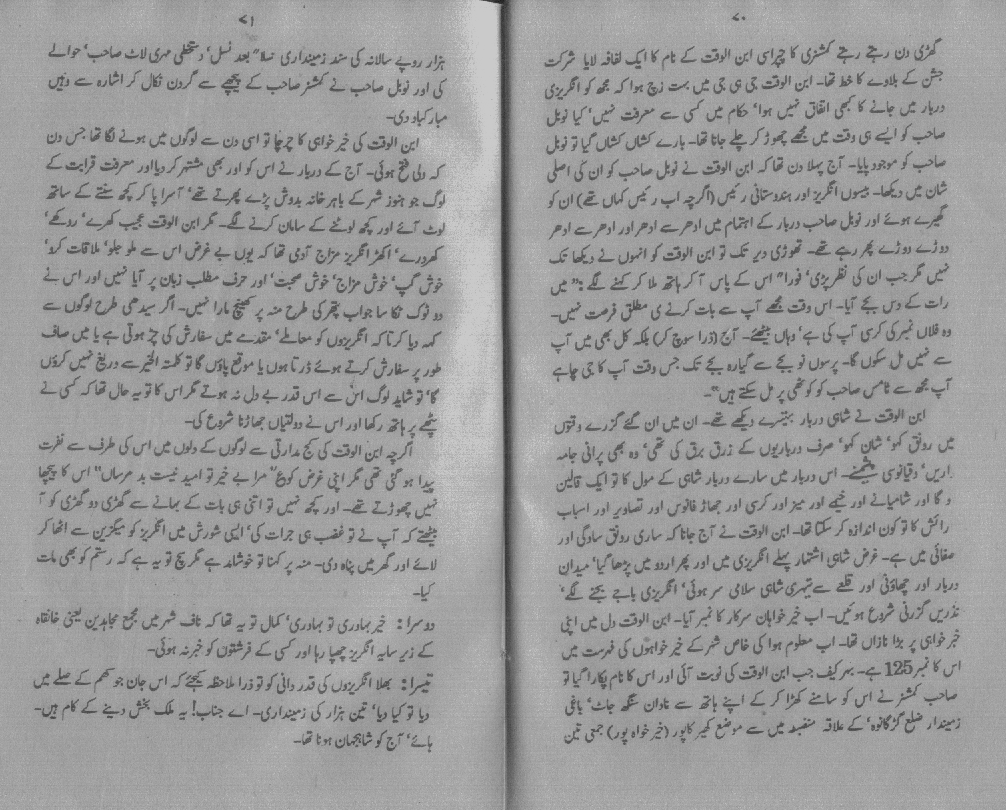 ۷۰
گھڑی دن رہتے رہتے کمشنری کا چپراسی ابن الوقت کے نام کا ایک لفافہ لایا شرکت
جشن کے بلاوے کا خط تھا۔ ابن الوقت جی ہی جی میں بہت زچ ہوا کہ مجھ کو انگریزی
دربار میں جانے کا کبھی اتفاق نہیں ہوا‘ حکام میں کسی سے معرفت نہیں‘ کیا نوبل
صاحب کو ایسے ہی وقت میں مجھے چھوڑ کر چلے جانا تھا۔ بارے کشاں کشاں گیا تو نوبل
صاحب کو موجود پایا۔ آج پہلا دن تھا کہ ابن الوقت نے نوبل صاحب کو ان کی اصلی
شان میں دیکھا۔ بیسوں انگریز اور ہندوستانی رئیس (اگرچہ اب رئیس کہاں تھے) ان کو
گھیرے ہوئے اور نوبل صاحب دربار کے اہتمام میں ادھر سے ادھر اور ادھر سے ادھر
دوڑے دوڑے پھر رہے تھے۔ تھوڑی دیر تک تو ابن الوقت کو انہوں نے دیکھا تک
نہیں مگر جب ان کی نظر پڑی‘ فورا" اس کے پاس آ کر ہاتھ ملا کر کہنے لگے "میں
رات کے دس بجے آیا۔ اس وقت مجھے آپ سے بات کرنے ی مطلق فرصت نہیں۔
وہ فلاں نمبر کی کرسی آپ کی ہے‘ وہاں بیٹھئے۔ آج (ذرا سوچ کر) بلکہ کل بھی میں آپ
سے نہیں مل سکوں گا۔ پرسوں نو بجے سے گیارہ بجے تک جس وقت آپ کا جی چاہے
آپ مجھ سے ٹامس صاحب کو کوٹھی پر مل سکتے ہیں"۔
ابن الوقت نے شاہی دربار بہتیرے دیکھے تھے۔ ان میں ان گئے گزرے وقتوں
میں رونق کہو‘ شان کہو‘ صرف درباریوں کے زرق برق کی تھی‘ وہ بھی پرانی جامہ
اریں‘ دقیانوسی چغے۔ اس دربار میں سارے دربار شاہی کے مول کا تو ایک قالین
و گا اور شامیانے اور خیمے اور میز اور کرسی اور جھاڑ فانوس اور تصاویر اور اسباب
رائش کا تو کون اندازہ کر سکتا تھا۔ ابن الوقت نے آج جانا کہ ساری رونق سادگی اور
صفائی میں ہے۔ غرض شاہی اشتہار پہلے انگریزی میں اور پھر اردو میں پڑھا گیا‘ میدان
دربار اور چھاؤنی اور قلعے سے تہری شاہی سلامی سر ہوئی‘ انگریزی باجے بجنے لگے‘
نذریں گزرنی شروع ہوئیں۔ اب خیر خواہان سرکار کا نمبر آیا۔ ابن الوقت دل میں اپنی
خیر خواہی پر بڑا نازاں تھا۔ اب معلوم ہوا کی خاص شہر کے خیر خواہوں کی فہرست میں
اس کا نمبر 125 ہے۔ بہرکیف جب ابن الوقت کی نوبت آئی اور اس کا نام پکارا گیا تو
صاحب کمشنر نے اس کو سامنے کھڑا کر کے اپنے ہاتھ سے نادان سنگھ جاٹ‘ باغی
زمیندار ضلع گڑگانوہ‘ کے علاقہ منضبطہ میں سے موضع کھیر کاپور (خیر خواہ پور) جمعی تین
۷۱
ہزار روپے سالانہ کی سند زمینداری نسلا" بعد نسل‘ دستخطی مہری لاٹ صاحب‘ حوالے
کی اور نوبل صاحب نے کمشنر صاحب کے پیچھے سے گردن نکال کر اشارہ سے وہیں
مبارکباد دی۔
ابن الوقت کی خیر خواہی کا چرچا تو اسی دن سے لوگوں میں ہونے لگا تھا جس دن
کہ دلی فتح ہوئی۔ آج کے دربار نے اس کو اور بھی مشتہر کر دیا اور معرفت قرابت کے
لوگ جو ہنوز شہر کے باہر خانہ بدوش پڑے پھرتے تھے‘ آسرا پا کر کچھ سنتے کے ساتھ
لوٹ آئے اور کچھ لوٹنے کے سامان کرنے لگے۔ مگر ابن الوقت عجیب کھرے‘ روکھے‘
کھردرے‘ اکھڑ انگریز مزاج آدمی تھا کہ یوں بے غرض اس سے ملو جلو‘ ملاقات کرو‘
خوش گپ‘ خوش مزاج‘ خوش صحبت‘ اور حرف مطلب زبان پر آیا نہیں اور اس نے
دو ٹوک ٹکا سا جواب پتھر کی طرح منہ پر کھینچ مارا نہیں۔ اگر سیدھی طرح لوگوں سے
کہہ دیا کرتا کہ انگریزوں کو معاملے‘ مقدمے میں سفارش کی چڑ ہوتی ہے یا میں صاف
طور پر سفارش کرتے ہوئے ڈرتا ہوں یا موقع پاؤں گا تو کلمتہ الخیر سے دریغ نہیں کروں
گا‘ تو شاید لوگ اس سے اس قدر بے دل نہ ہوتے مگر اس کا تو یہ حال تھا کہ کسی نے
پٹھے پر ہاتھ رکھا اور اس نے دولتیاں جھاڑنا شروع کی۔
اگرچہ ابن الوقت کی کج مدارتی سے لوگوں کے دلوں میں اس کی طرف سے نفرت
پیدا ہو گئی تھی مگر اپنی غرض کو ع "مرا بے خیر تو امید نیست بد مرساں" اس کا پیچھا
نہیں چھوڑتے تھے۔ اور کچھ نہیں تو اتنی ہی بات کے بہانے سے گھڑی دو گھڑی کو آ
بیٹھتے کہ آپ نے تو غضب ہی جرات کی‘ ایسی شورش میں انگریز کو میگزین سے اٹھا کر
لائے اور گھر میں پناہ دی۔ منہ پر کہنا تو خوشامد ہے مگر سچ تو یہ ہے کہ رستم کو بھی مات
کیا۔
دوسرا: خیر بہادری تو بہادری‘ کمال تو یہ تھا کہ ناف شہر میں مجمع مجاہدین یعنی خانقاہ
کے زیر سایہ انگریز چھپا رہا اور کسی کے فرشتوں کو خبر نہ ہوئی۔
تیسرا: بھلا انگریزوں کی قدر دانی کو تو ذرا ملاحظہ کیجئے کہ اس جان جوکھم کے صلے میں
دیا تو کیا دیا‘ تین ہزار کی زمینداری۔ اے جناب! یہ ملک بخش دینے کے کام ہیں۔
ہائے‘ آج کو شاہجہان ہونا تھا۔